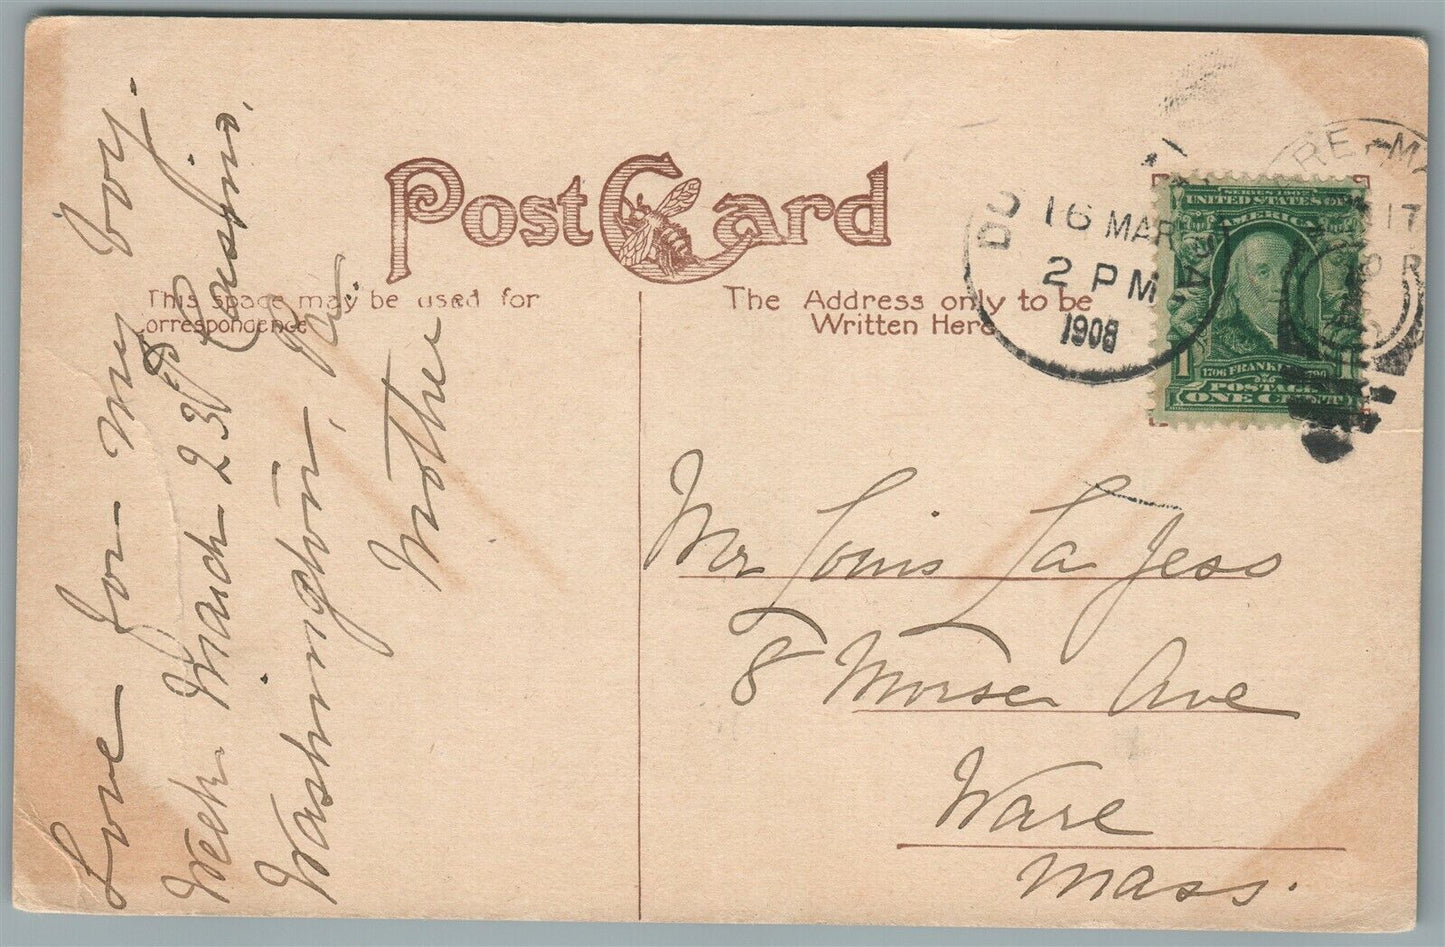 Post Card
This space may be used for
correspondence
The Address only to be
Written Here
DU
16 MAR
2 PM
1908
PA.
RE-MA
17
SERIES 1902
UNITED STATES OF
AMERICA
1706 FRANKLIN 1790
POSTAGE
ONE CENT
1
Love for my boy.
Week March 23rd Casino,
Washington, Pa.
Mother
Mr Louis La Jess
8 Morse Ave
Ware
Mass.